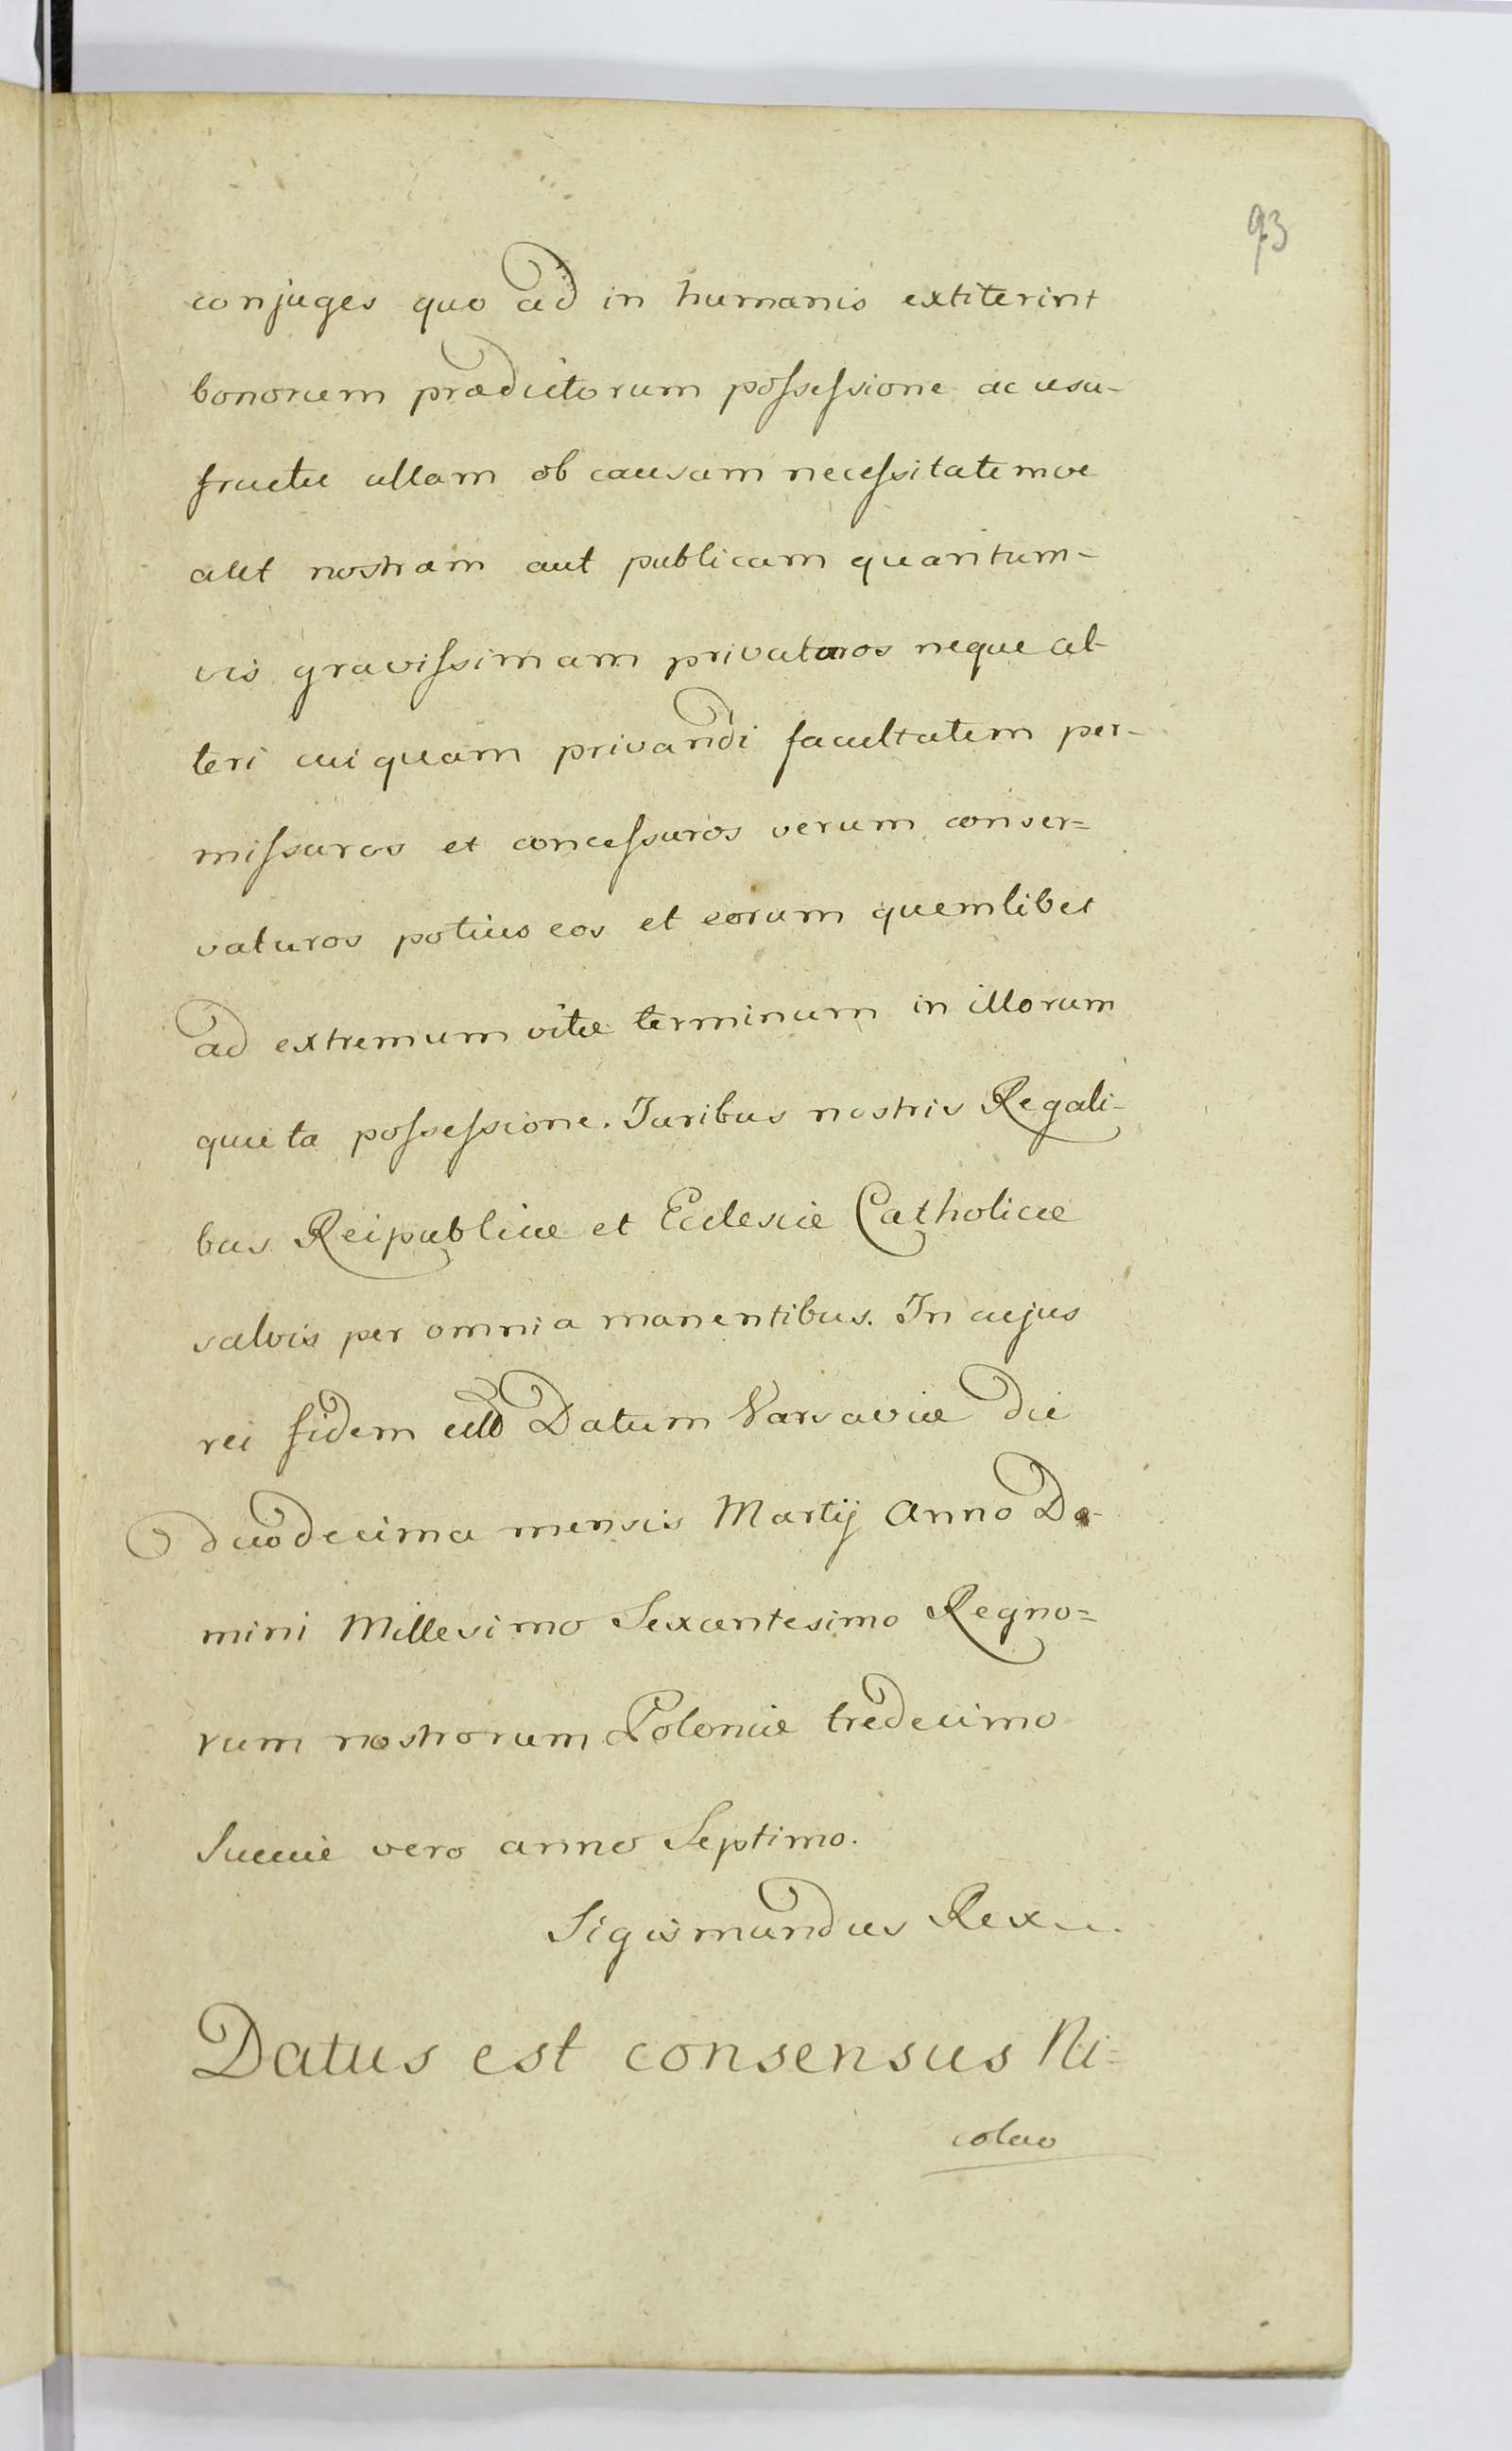 93
conjuges quo ad in humanis extiterint
bonorum prædictorum possessione ac usu-
fructu ullam ob causam necessitatemve
aut nostram aut publicam quantum-
vis gravissimam privaturos neque al-
teri cuiquam privandi facultatem per-
missuros et concessuros verum conser=
vaturos potius eos et eorum quemlibet
ad extremum vitæ terminum in illorum
quieta possessione. Juribus nostris Regali-
bus Reipublicæ et Eclesiæ Catholicæ
salvis per omnia manentibus. In cujus
rei fidem Datum Varsaviæ die
duodecima mensis Martij Anno Do-
mini Millesimo Sexcentesimo Regno=
rum nostrorum Poloniæ tredecimo
Sueciæ vero anno Septimo.
Sigismundus Rex...
Datus est consensus Ni=
colao